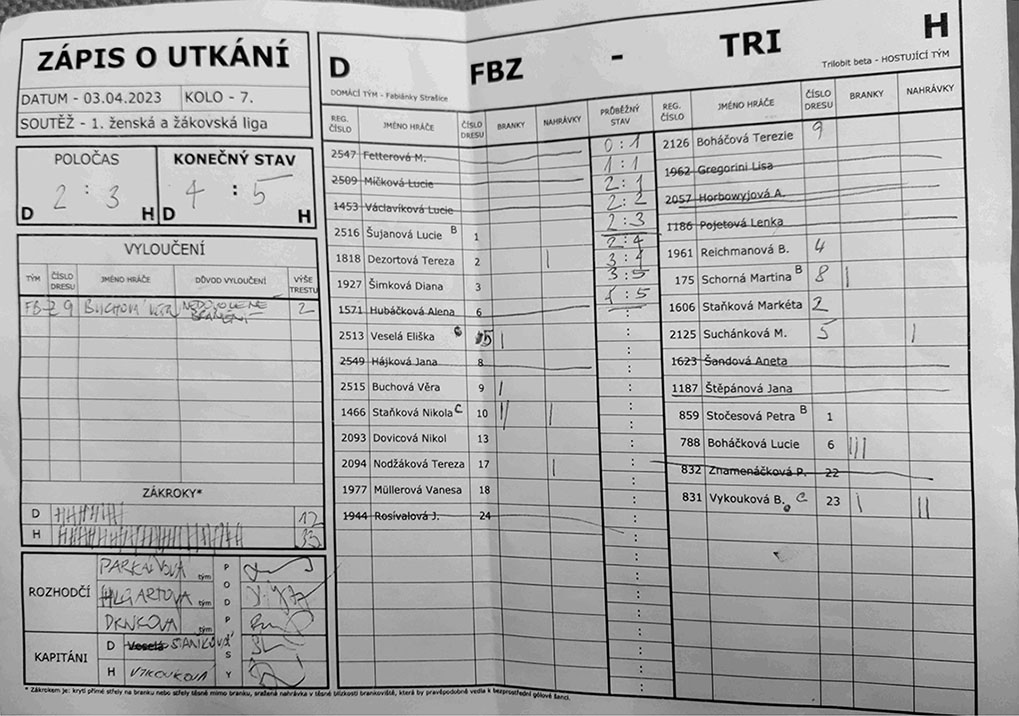 ZÁPIS O UTKÁNÍ
DATUM - 03.04.2023 KOLO - 7.
SOUTĚŽ - 1. ženská a žákovská liga
POLOČAS KONEČNÝ STAV
2 : 3 4 : 5
D H D H
VYLOUČENÍ
TÝM ČÍSLO DRESU JMÉNO HRÁČE DŮVOD VYLOUČENÍ VÝŠE TRESTU
FBZ 9 BUCHOVÁ VĚRA NEDOVOLENÉ BRÁNĚNÍ 2
ZÁKROKY*
D 17
H 35
ROZHODČÍ
tým
tým
tým
PODPISY
KAPITÁNI
D Veselá STAŇKOVÁ
H VYKOUKOVÁ
* Zákrokem je: krytí přímé střely na branku nebo střely těsně mimo branku, sražená nahrávka v těsné blízkosti brankoviště, která by pravděpodobně vedla k bezprostřední gólové šanci.
D FBZ - TRI H
DOMÁCÍ TÝM - Fabiánky Strašice
Trilobit beta - HOSTUJÍCÍ TÝM
REG. ČÍSLO JMÉNO HRÁČE ČÍSLO DRESU BRANKY NAHRÁVKY PRŮBĚŽNÝ STAV REG. ČÍSLO JMÉNO HRÁČE ČÍSLO DRESU BRANKY NAHRÁVKY
2547 Fetterová M.
2509 Míčková Lucie
1453 Václavíková Lucie
2516 Šujanová Lucie B 1
1818 Dezortová Tereza 2 |
1927 Šimková Diana 3
1571 Hubáčková Alena 6
2513 Veselá Eliška 5 |
2549 Hájková Jana 8
2515 Buchová Věra 9 |
1466 Staňková Nikola C 10 || |
2093 Dovicová Nikol 13
2094 Nodžáková Tereza 17 |
1977 Müllerová Vanesa 18
1944 Rosívalová J. 24
0:1
1:1
2:1
2:2
2:3
2:4
3:4
3:5
4:5
2126 Boháčová Terezie 9
1962 Gregorini Lisa
2057 Horbowyjová A.
1186 Pojetová Lenka
1961 Reichmanová B. 4
175 Schorná Martina B 8 |
1606 Staňková Markéta 2
2125 Suchánková M. 5 |
1623 Šandová Aneta
1187 Štěpánová Jana
859 Stočesová Petra B 1
788 Boháčková Lucie 6 |||
832 Znamenáčková P. 22
831 Vykouková B. C 23 | ||